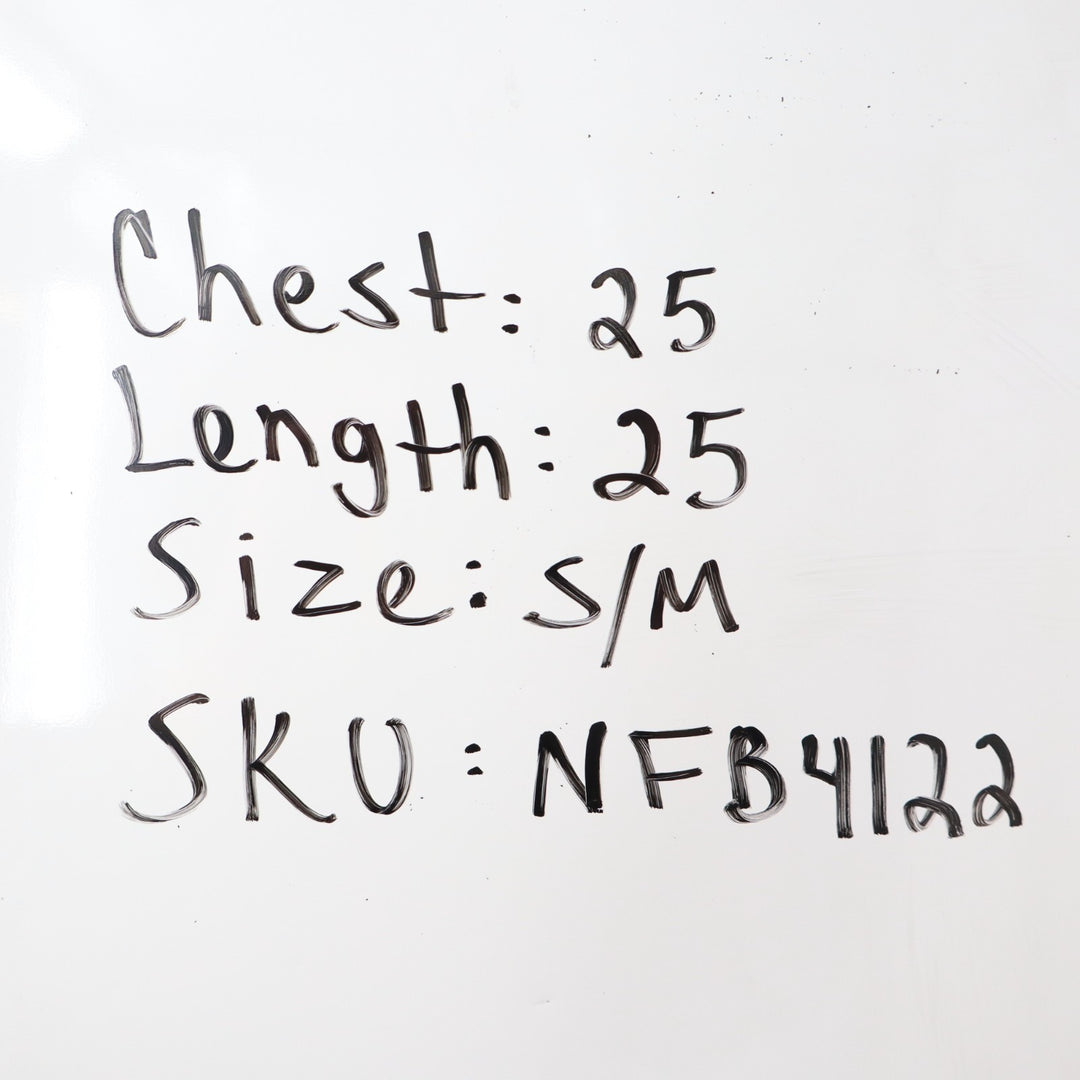 Chest: 25
Length: 25
Size: S/M
SKU: NFB4122